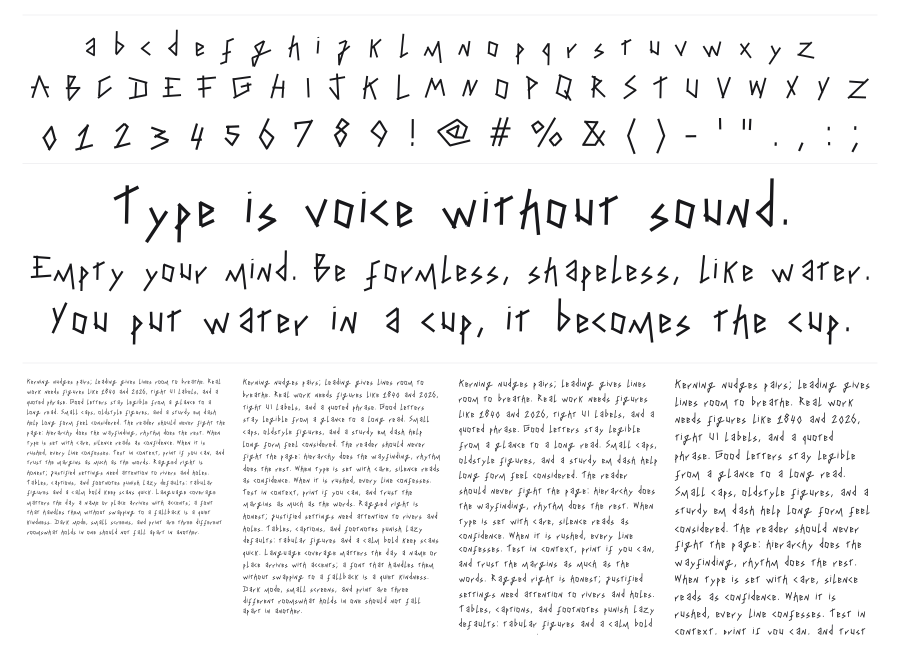 a b c d e f g h i j k l m n o p q r s t u v w x y z
A B C D E F G H I J K L M N O P Q R S T U V W X Y Z
0 1 2 3 4 5 6 7 8 9 ! @ # % & ( ) - ' " . , : ;
Type is voice without sound.
Empty your mind. Be formless, shapeless, like water.
You put water in a cup, it becomes the cup.
Kerning nudges pairs; leading gives lines room to breathe. Real
work needs figures like 1840 and 2026, tight UI labels, and a
quoted phrase. Good letters stay legible from a glance to a
long read. Small caps, oldstyle figures, and a sturdy em dash
help long form feel considered. The reader should never fight the
page: hierarchy does the wayfinding, rhythm does the rest. When
type is set with care, silence reads as confidence. When it is
rushed, every line confesses. Test in context, print if you can, and
trust the margins as much as the words. Ragged right is
honest; justified settings need attention to rivers and holes.
Tables, captions, and footnotes punish lazy defaults: tabular
figures and a calm bold keep scans quick. Language coverage
matters the day a name or place arrives with accents; a font
that handles them without swapping to a fallback is a quiet
kindness. Dark mode, small screens, and print are three different
roomswhat holds in one should not fall apart in another.
Kerning nudges pairs; leading gives lines room to
breathe. Real work needs figures like 1840 and 2026,
tight UI labels, and a quoted phrase. Good letters
stay legible from a glance to a long read. Small
caps, oldstyle figures, and a sturdy em dash help
long form feel considered. The reader should never
fight the page: hierarchy does the wayfinding, rhythm
does the rest. When type is set with care, silence reads
as confidence. When it is rushed, every line confesses.
Test in context, print if you can, and trust the
margins as much as the words. Ragged right is
honest; justified settings need attention to rivers and
holes. Tables, captions, and footnotes punish lazy
defaults: tabular figures and a calm bold keep scans
quick. Language coverage matters the day a name or
place arrives with accents; a font that handles them
without swapping to a fallback is a quiet kindness.
Dark mode, small screens, and print are three
different roomswhat holds in one should not fall
apart in another.
Kerning nudges pairs; leading gives lines
room to breathe. Real work needs figures
like 1840 and 2026, tight UI labels, and a
quoted phrase. Good letters stay legible
from a glance to a long read. Small caps,
oldstyle figures, and a sturdy em dash help
long form feel considered. The reader
should never fight the page: hierarchy does
the wayfinding, rhythm does the rest. When
type is set with care, silence reads as
confidence. When it is rushed, every line
confesses. Test in context, print if you can,
and trust the margins as much as the
words. Ragged right is honest; justified
settings need attention to rivers and holes.
Tables, captions, and footnotes punish lazy
defaults: tabular figures and a calm bold
Kerning nudges pairs; leading gives
lines room to breathe. Real work
needs figures like 1840 and 2026,
tight UI labels, and a quoted
phrase. Good letters stay legible
from a glance to a long read.
Small caps, oldstyle figures, and a
sturdy em dash help long form feel
considered. The reader should never
fight the page: hierarchy does the
wayfinding, rhythm does the rest.
When type is set with care, silence
reads as confidence. When it is
rushed, every line confesses. Test in
context, print if you can, and trust